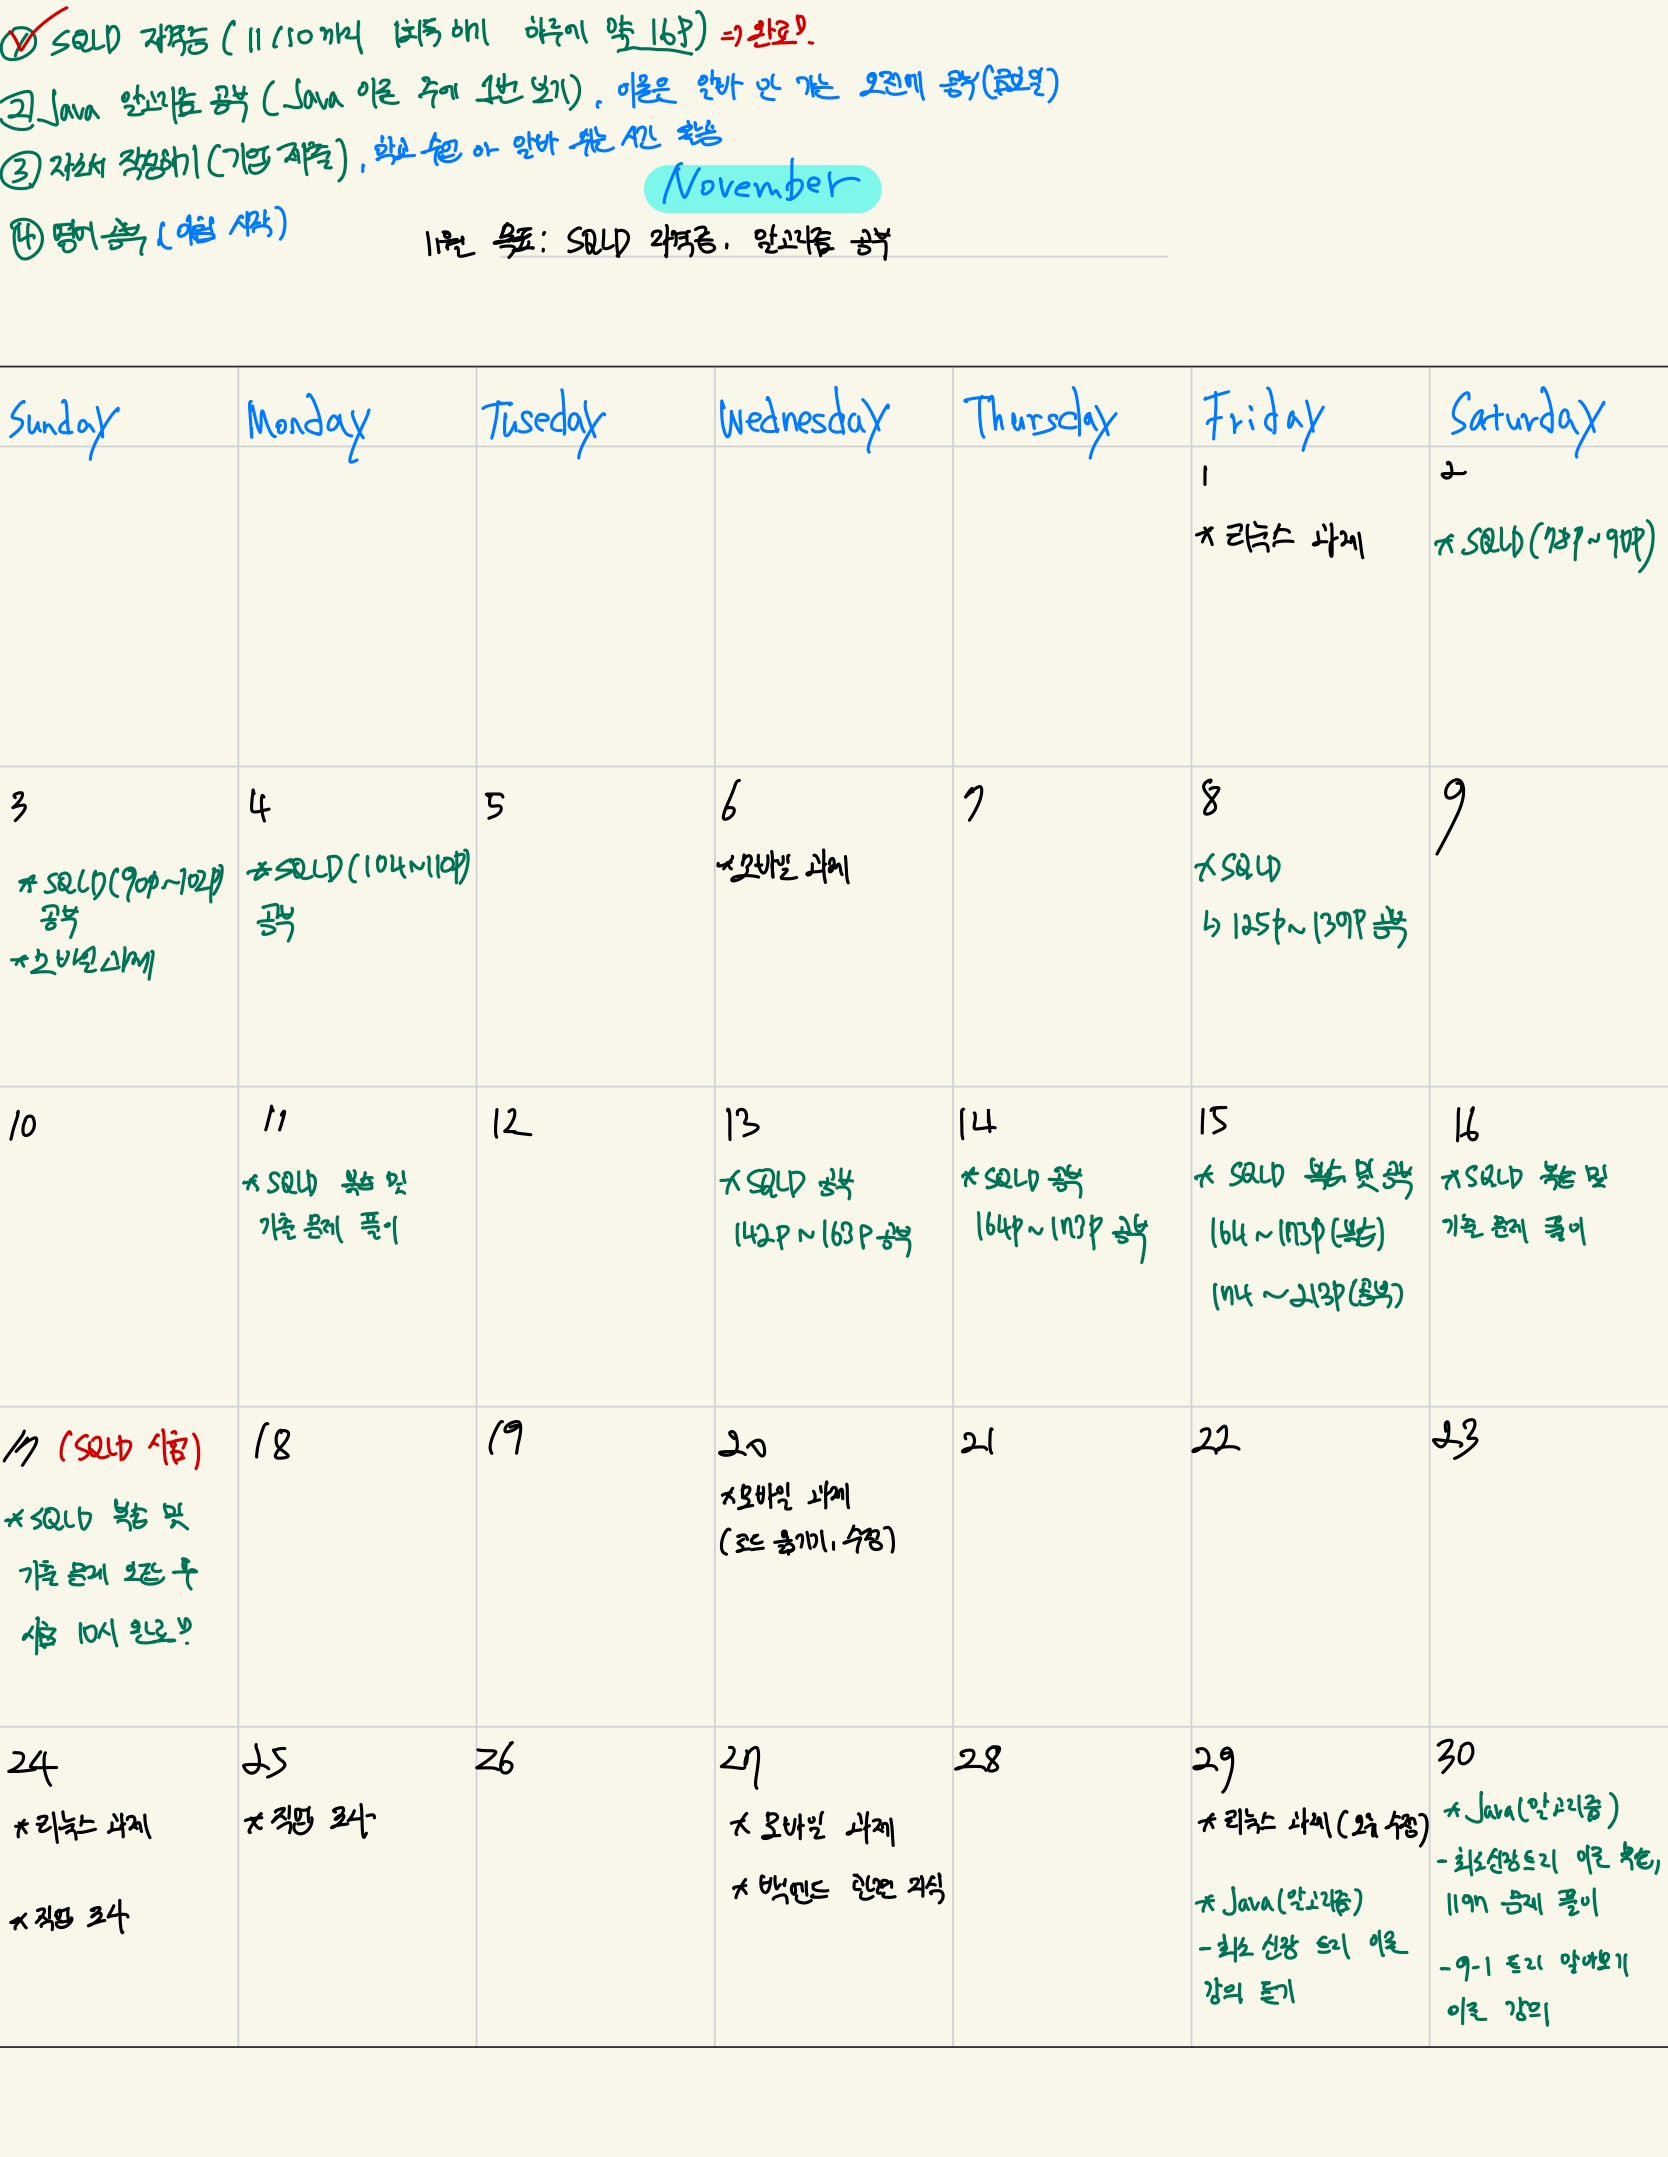 ① SQLD 자격증 (11/10까지 1회독 하기 하루에 약 16p) => 완료!
② Java 알고리즘 공부 (Java 이론 주에 1번 보기), 이론은 알바 안 가는 오전에 공부(금토일)
③ 자소서 작성하기 (기업 제출), 학교 수업 알바 쉬는 시간 활용
④ 영어 공부 ( 시작)
November
11월 목표: SQLD 자격증, 알고리즘 공부
Sunday Monday Tuseday Wednesday Thursday Friday Saturday
1 2
* 리눅스 과제
* SQLD (78p~90p)
3 4 5 6 7 8 9
* SQLD (90p~102p)
공부
* 모바일 과제
* SQLD (104~110p)
공부
* 모바일 과제
* SQLD
↳ 125p~139p 공부
10 11 12 13 14 15 16
* SQLD 복습 및
기출 문제 풀이
* SQLD 공부
142p~163p 공부
* SQLD 공부
164p~173p 공부
* SQLD 복습 및 공부
164~173p (복습)
174~213p (공부)
* SQLD 복습 및
기출 문제 풀이
17 (SQLD 시험) 18 19 20 21 22 23
* SQLD 복습 및
기출 문제 오답 후
시험 10시 완료!
* 모바일 과제
(코드 옮기기, 수정)
24 25 26 27 28 29 30
* 리눅스 과제
* 직업 조사
* 직업 조사
* 모바일 과제
* 백엔드 관련 지식
* 리눅스 과제 (오류 수정)
* Java (알고리즘)
- 최소 신장 트리 이론
강의 듣기
* Java (알고리즘)
- 최소신장트리 이론 복습,
1197 문제 풀이
- 9-1 트리 알아보기
이론 강의